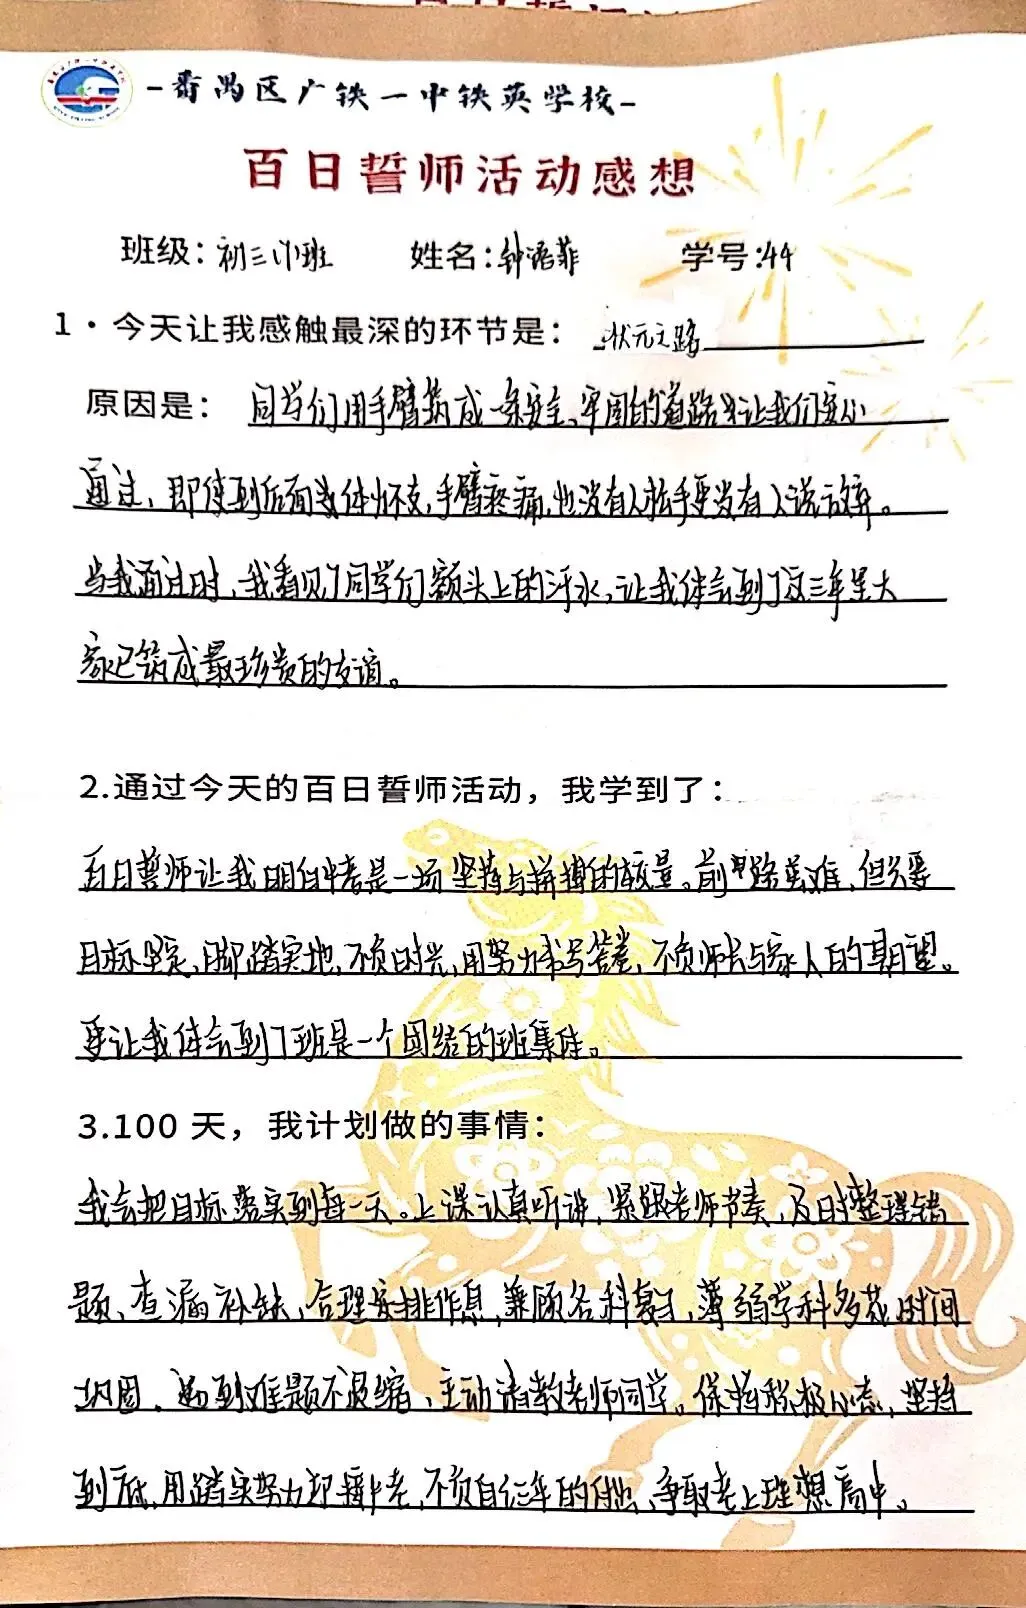 -番禺区广铁一中铁英学校-
百日誓师活动感想
班级：初三班 姓名：钟语菲 学号：44
1·今天让我感触最深的环节是：状元之路
原因是：同学们用手臂筑成一条安全、牢固的道路让我们安心
通过，即使到后面身体吃不支，手臂疼痛，也没有人松手更没有人说放弃。
当我通过时，我看见了同学们额头上的汗水，让我体会到了这三年里大
家已筑成最珍贵的友谊。
2.通过今天的百日誓师活动，我学到了：
百日誓师让我明白中考是一场坚持与拼搏的较量。前路虽难，但只要
目标坚定，脚踏实地，不负时光，用努力书写答卷，不负师长与家人的期望。
更让我体会到了班是一个团结的班集体。
3.100 天，我计划做的事情：
我会把目标落实到每一天。上课认真听讲，紧跟老师节奏，及时整理错
题、查漏补缺，合理安排作息，兼顾各科复习，薄弱学科多花时间
巩固，遇到难题不退缩，主动请教老师同学。保持积极心态，坚持
到底，用踏实努力迎接中考，不负自己三年的付出，争取考上理想高中。